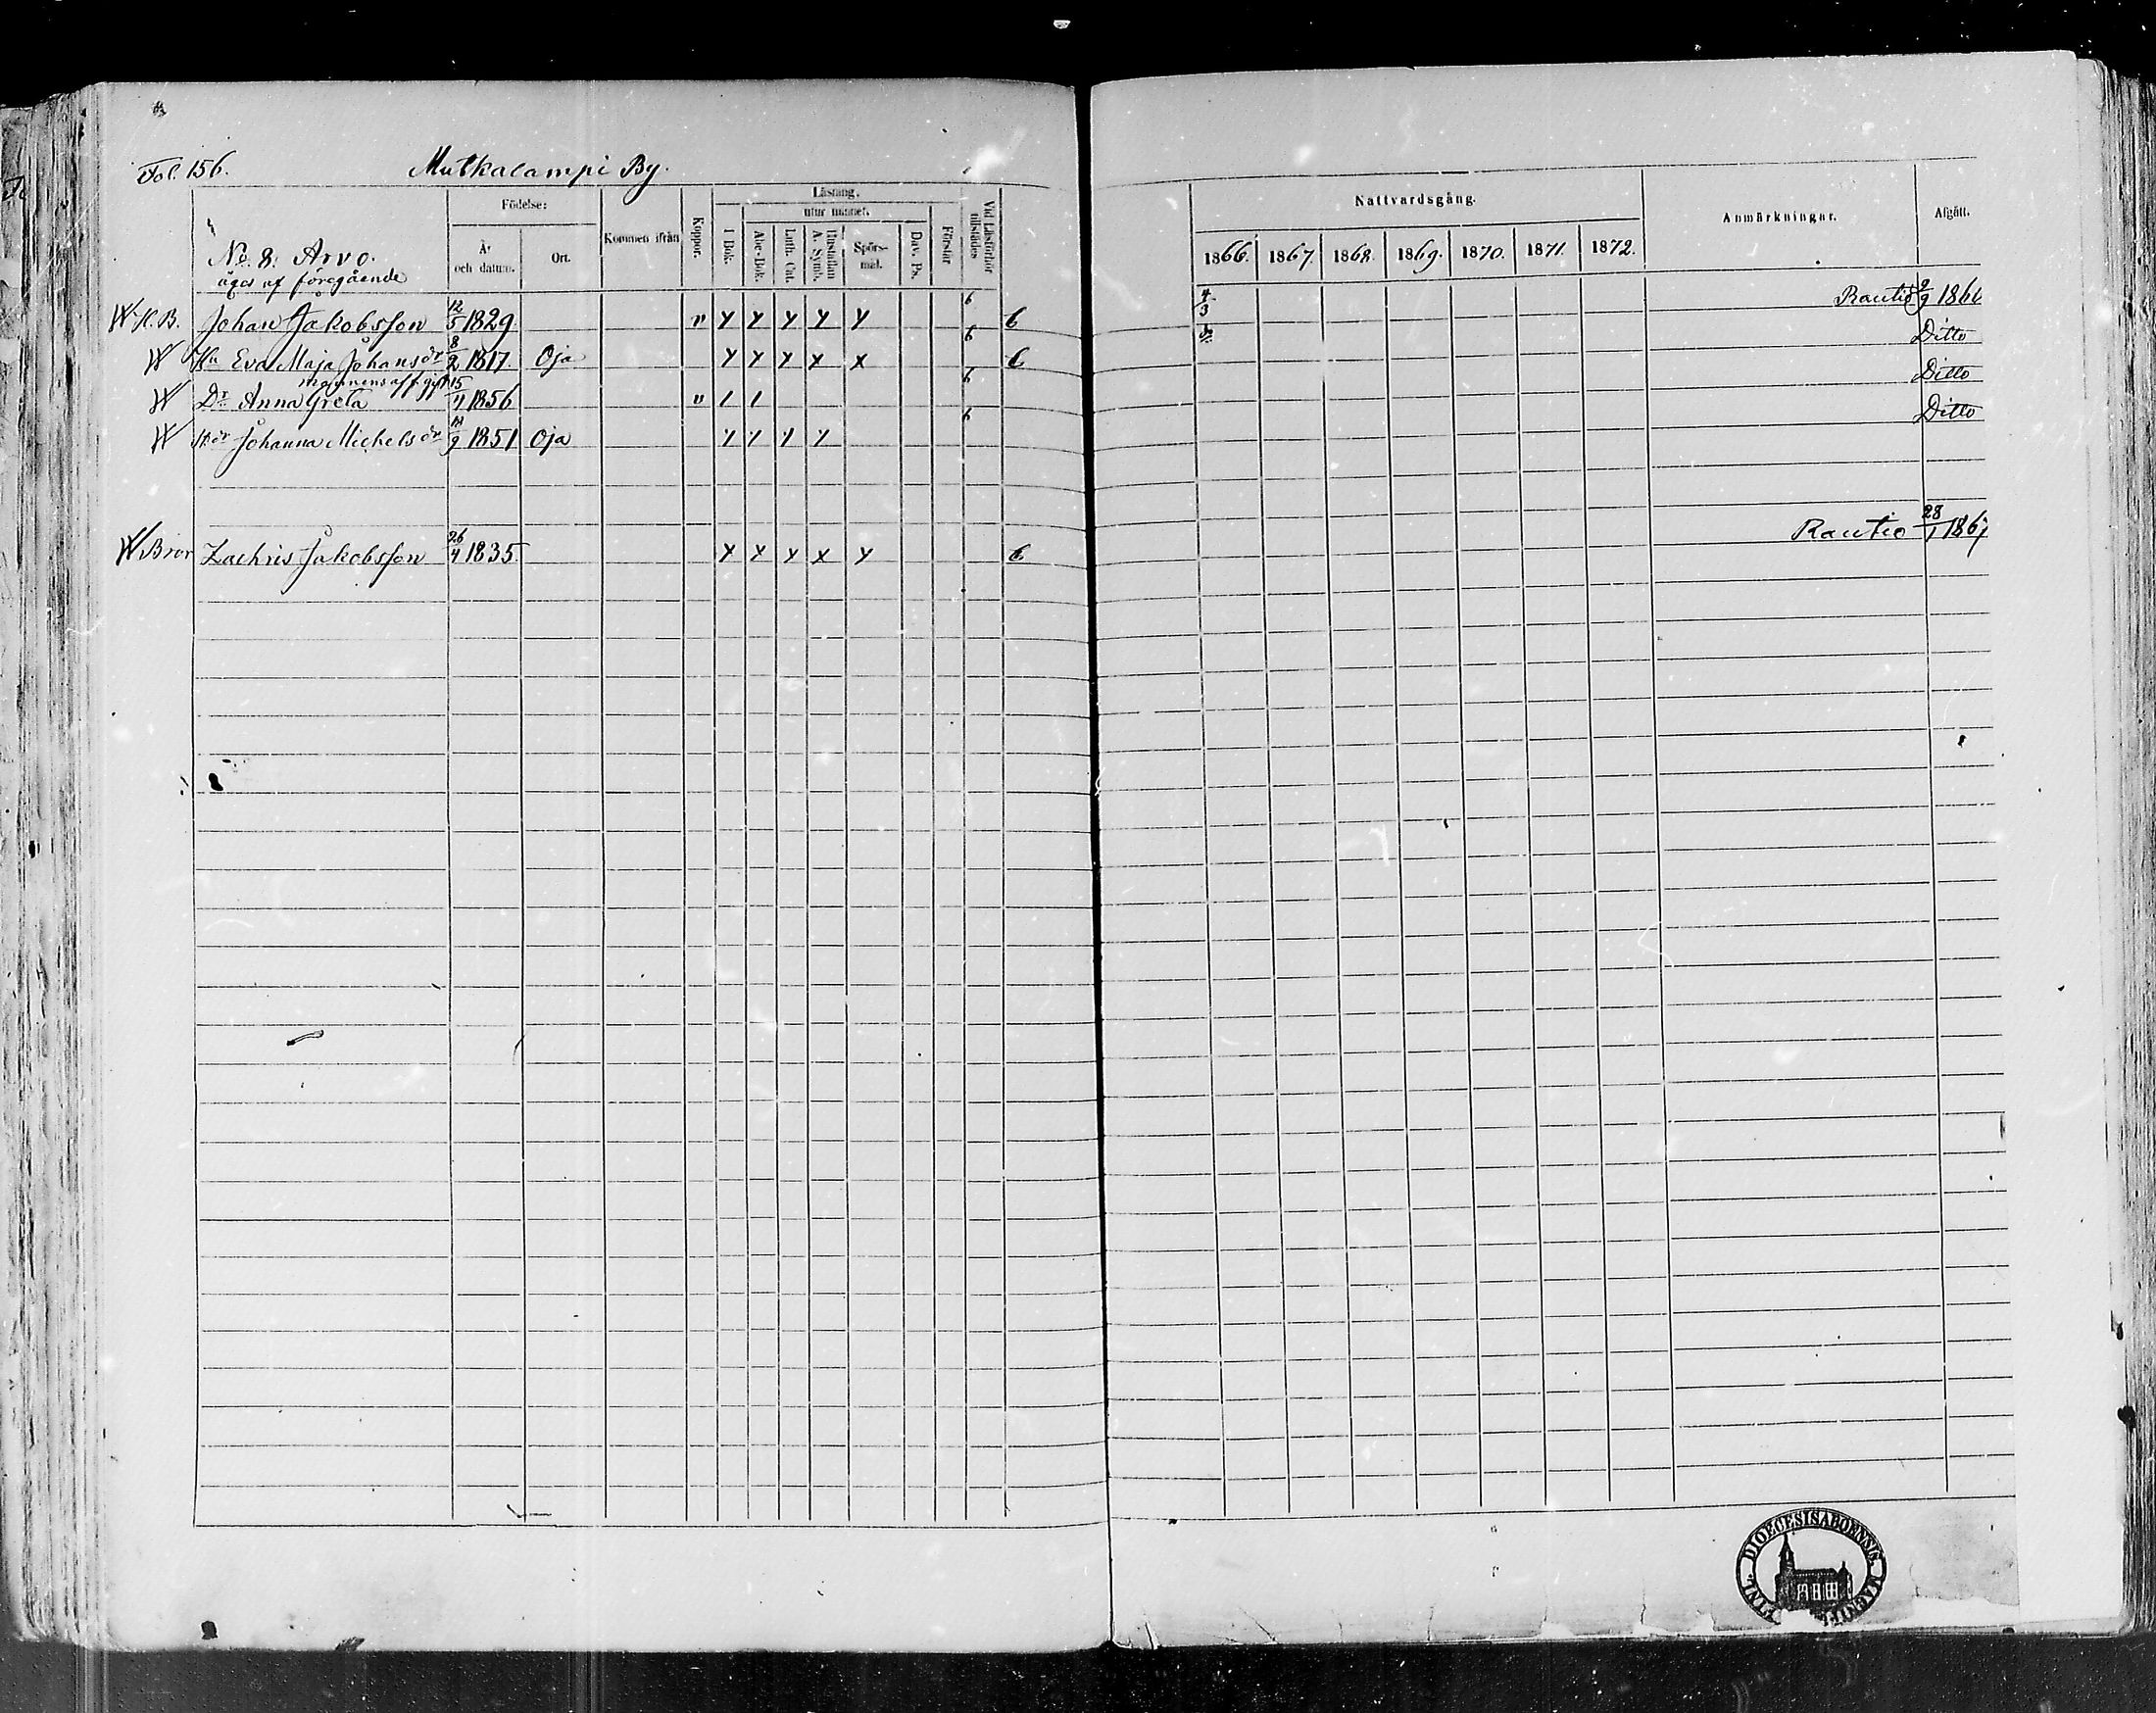 Fol. 156. Mutkalampi By.
Födelse: Läsning. Nattvardsgång.
utur minnet.
No. 8. Arvo. År och datum. Ort. Kommen ifrån Koppor. I Bok. Abc-Bok. Luth. Cat. Hustaflan A. Symb. Spörs-mål. Dav. Ps. Förstår Vid Läsförhör tillstädes 1866. 1867. 1868. 1869. 1870. 1871. 1872. Anmärkningar. Afgått.
äges af föregående
H. B. Johan Jakobsson 12/5 1829 v y y y y y 6 6 4/3 Rautio 2/9 1866
Hu Eva Maja Johansdr 8/2 1817. Oja y y y x x 6 6 Ditto
mannens aff. gift
Dr Anna Greta 15/11 1856 v 1 1 6 Ditto
Johanna Michelsdr /9 1851 Oja y y y y 6 Ditto
Bror Zachris Jakobsson 26/4 1835 y y y x y 6 Rautio 28/1 1867
DIOECESIS ABOENSIS